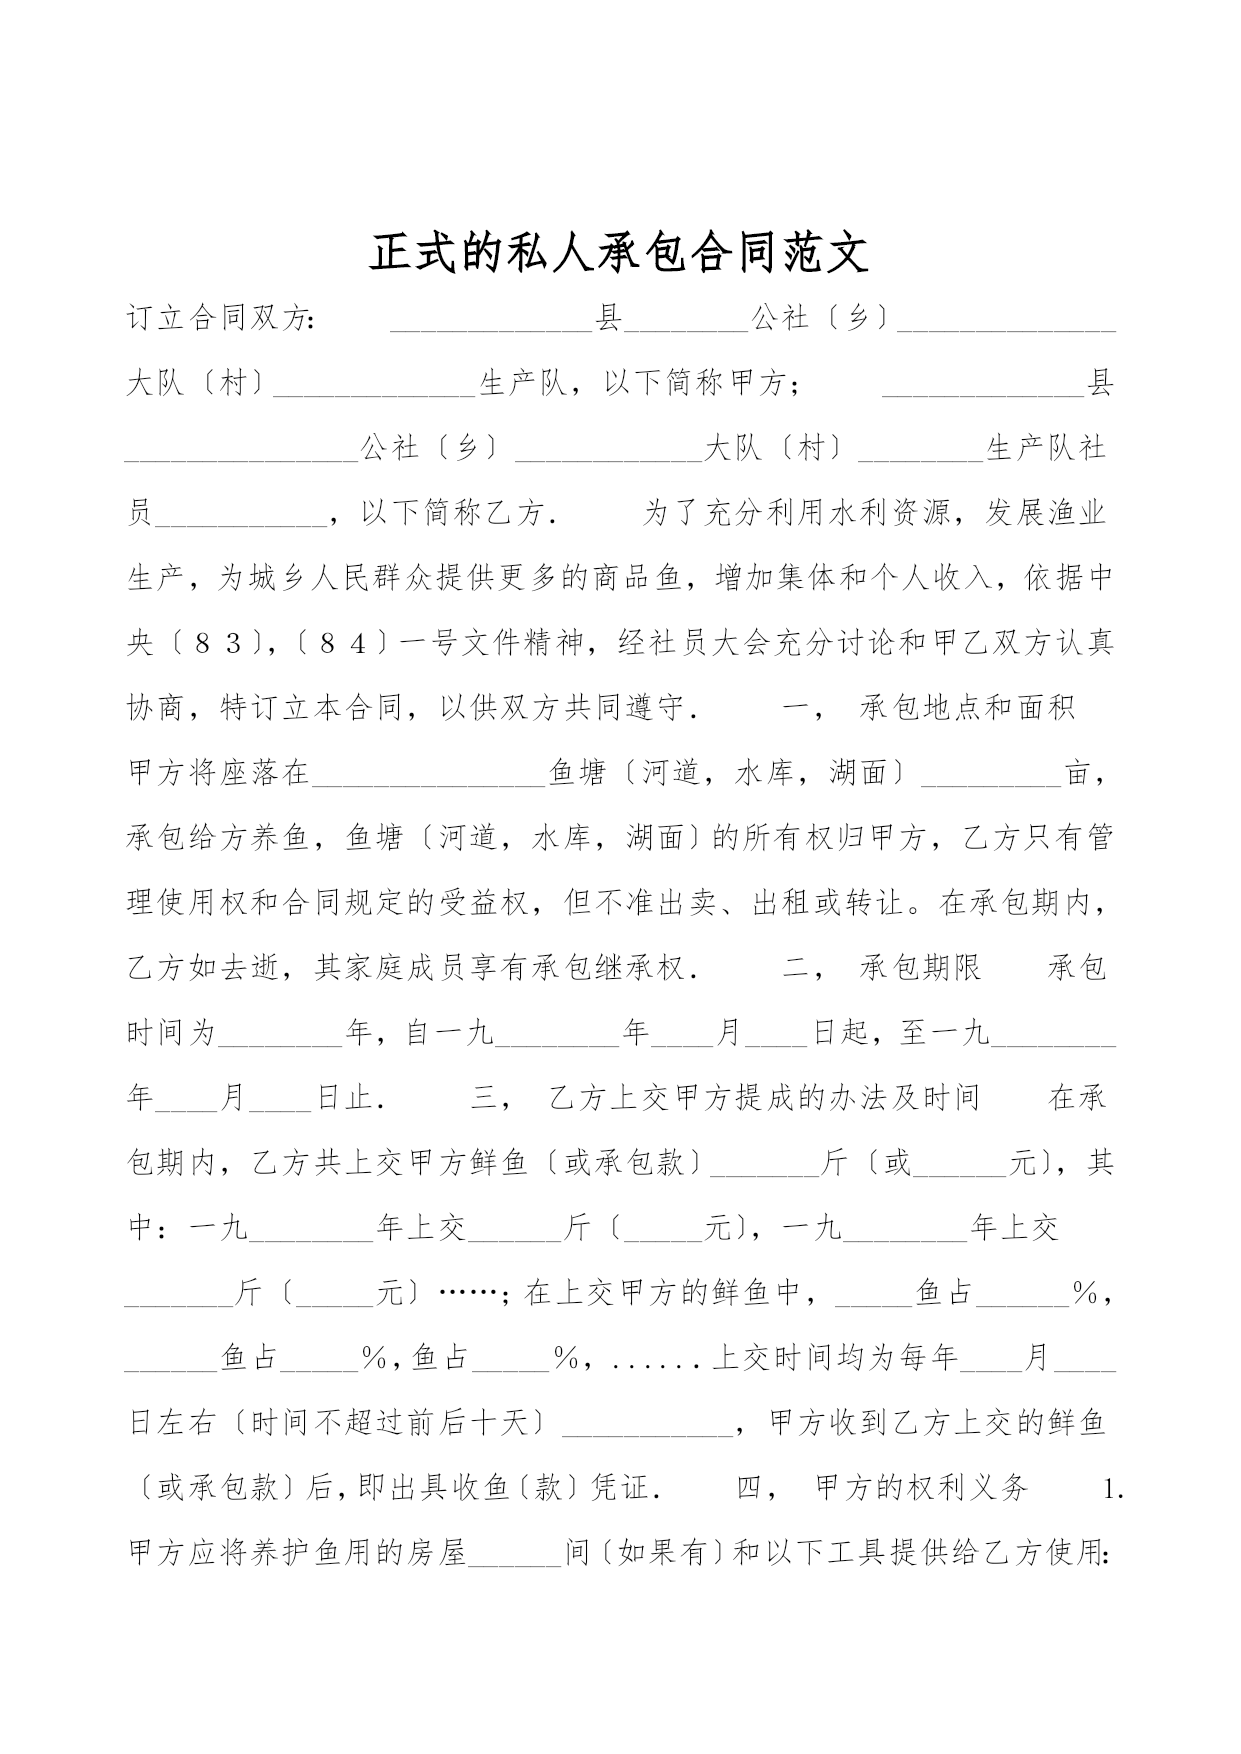 正式的私人承包合同范文
订立合同双方: _____________县________公社〔乡〕______________
大队〔村〕_____________生产队，以下简称甲方； _____________县
_______________公社〔乡〕____________大队〔村〕________生产队社
员___________，以下简称乙方． 为了充分利用水利资源，发展渔业
生产，为城乡人民群众提供更多的商品鱼，增加集体和个人收入，依据中
央〔８３〕，〔８４〕一号文件精神，经社员大会充分讨论和甲乙双方认真
协商，特订立本合同，以供双方共同遵守． 一， 承包地点和面积
甲方将座落在_______________鱼塘〔河道，水库，湖面〕_________亩，
承包给方养鱼，鱼塘〔河道，水库，湖面〕的所有权归甲方，乙方只有管
理使用权和合同规定的受益权，但不准出卖、出租或转让。在承包期内，
乙方如去逝，其家庭成员享有承包继承权． 二， 承包期限 承包
时间为________年，自一九________年____月____日起，至一九________
年____月____日止． 三， 乙方上交甲方提成的办法及时间 在承
包期内，乙方共上交甲方鲜鱼〔或承包款〕_______斤〔或______元〕，其
中：一九________年上交______斤〔_____元〕，一九________年上交
_______斤〔_____元〕……；在上交甲方的鲜鱼中，_____鱼占______％，
______鱼占_____％，鱼占_____％，......上交时间均为每年____月____
日左右〔时间不超过前后十天〕___________，甲方收到乙方上交的鲜鱼
〔或承包款〕后，即出具收鱼〔款〕凭证． 四， 甲方的权利义务 1.
甲方应将养护鱼用的房屋______间〔如果有〕和以下工具提供给乙方使用: